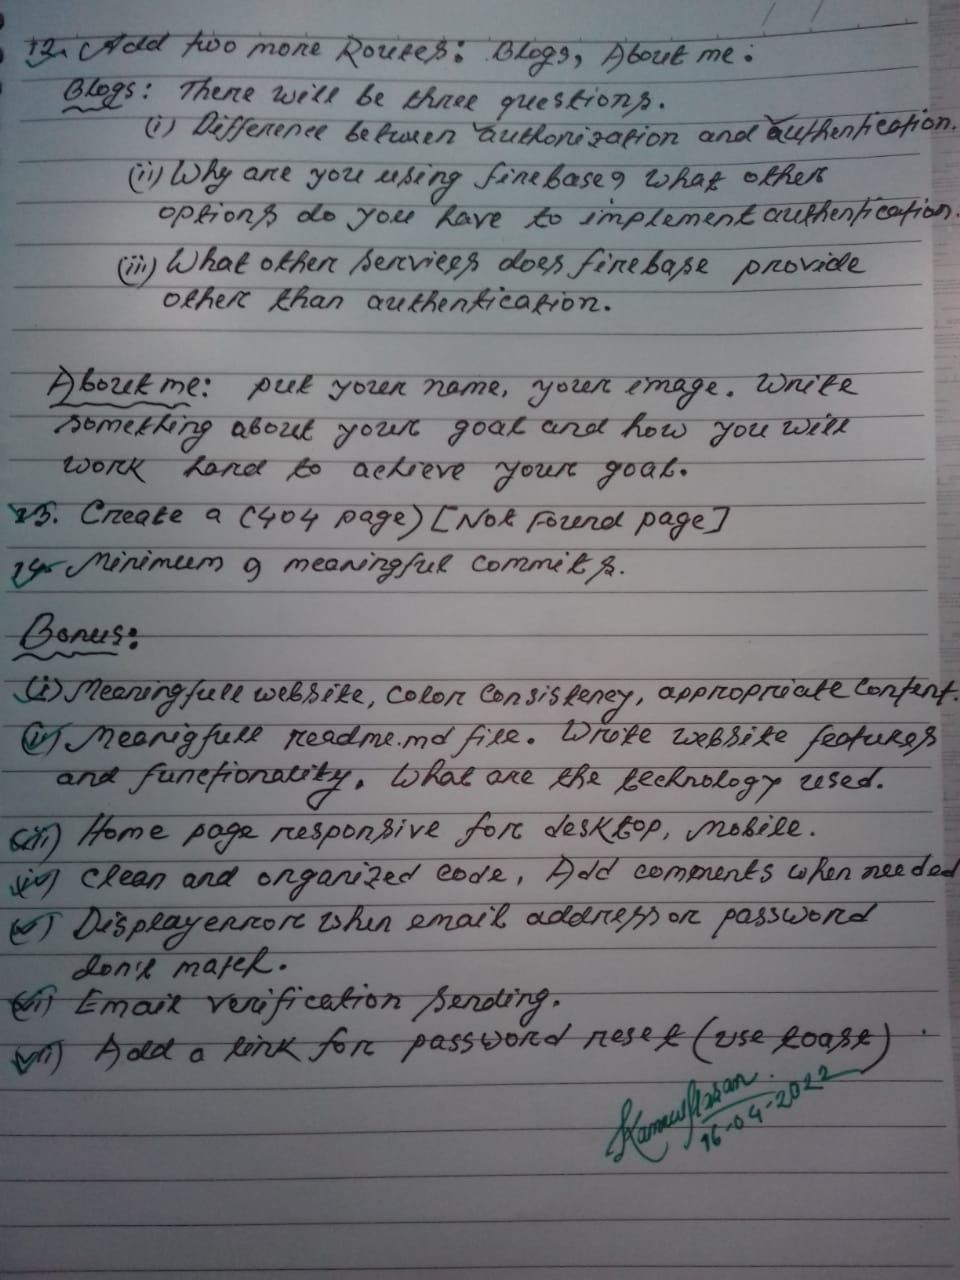 12. Add two more Routes: Blogs, About me:
Blogs: There will be three questions.
(i) Difference between authorization and authentication.
(ii) Why are you using firebase, what other
options do you have to implement authentication.
(iii) What other services does firebase provide
other than authentication.
About me: put your name, your image. Write
something about your goal and how you will
work hard to achieve your goal.
13. Create a (404 page) [Not Found page]
14. Minimum 9 meaningful commits.
Bonus:
(i) Meaningfull website, color consistency, appropriate content.
(ii) Meanigfull readme.md file. Write website features
and functionality. What are the technology used.
(iii) Home page responsive for desktop, mobile.
(iv) Clean and organized code, Add comments when needed
(v) Display error when email address or password
don't match.
(vi) Email verification sending.
(vii) Add a link for password reset (use toast)
16-04-2022